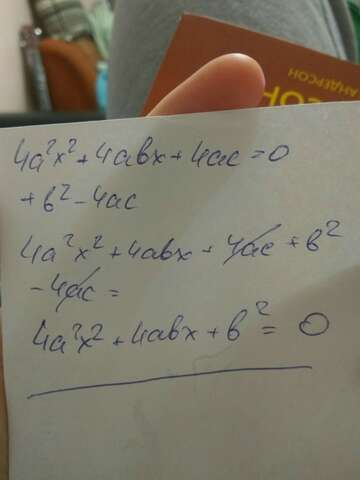 АНДЕРСОН
4a²x² + 4abx + 4ac = 0
+ b² - 4ac
4a²x² + 4abx + 4ac + b²
- 4ac =
4a²x² + 4abx + b² = 0